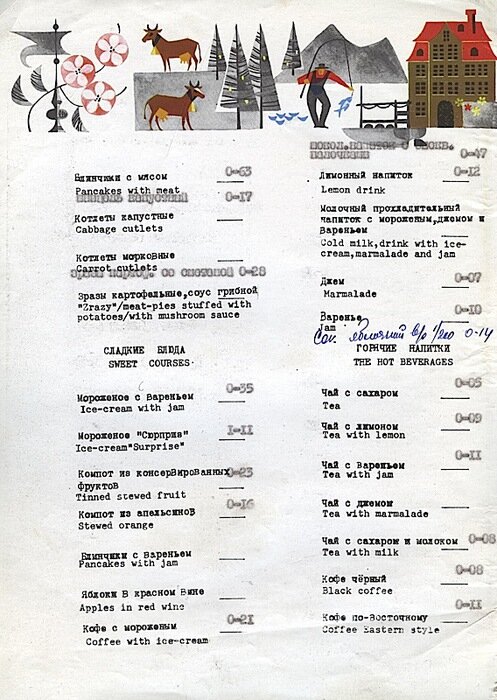 Блинчики с мясом 0-63
Pancakes with meat
0-17
Котлеты капустные
Cabbage cutlets
Котлеты морковные
Carrot cutlets
со сметаной 0-28
Зразы картофельные,соус грибной
"Zrazy"/meat-pies stuffed with
potatoes/with mushroom sauce
СЛАДКИЕ БЛЮДА
SWEET COURSES
Мороженое с вареньем 0-35
Ice-cream with jam
Мороженое "Сюрприз" 1-11
Ice-cream"Surprise"
Компот из консервированных 0-23
фруктов
Tinned stewed fruit
Компот из апельсинов 0-16
Stewed orange
Блинчики с вареньем
Pancakes with jam
Яблоки в красном вине
Apples in red wine
Кофе с мороженым 0-21
Coffee with ice-cream
0-47
Лимонный напиток 0-12
Lemon drink
Молочный прохладительный
напиток с мороженым,джемом и
вареньем
Cold milk,drink with ice-
cream,marmalade and jam
Джем 0-07
Marmalade
Варенье 0-10
Jam
Сок яблочный 0-14
ГОРЯЧИЕ НАПИТКИ
THE HOT BEVERAGES
Чай с сахаром 0-05
Tea
Чай с лимоном 0-09
Tea with lemon
Чай с вареньем 0-11
Tea with jam
Чай с джемом
Tea with marmalade
Чай с сахаром и молоком 0-08
Tea with milk
Кофе чёрный 0-08
Black coffee
Кофе по-Восточному 0-11
Coffee Eastern style